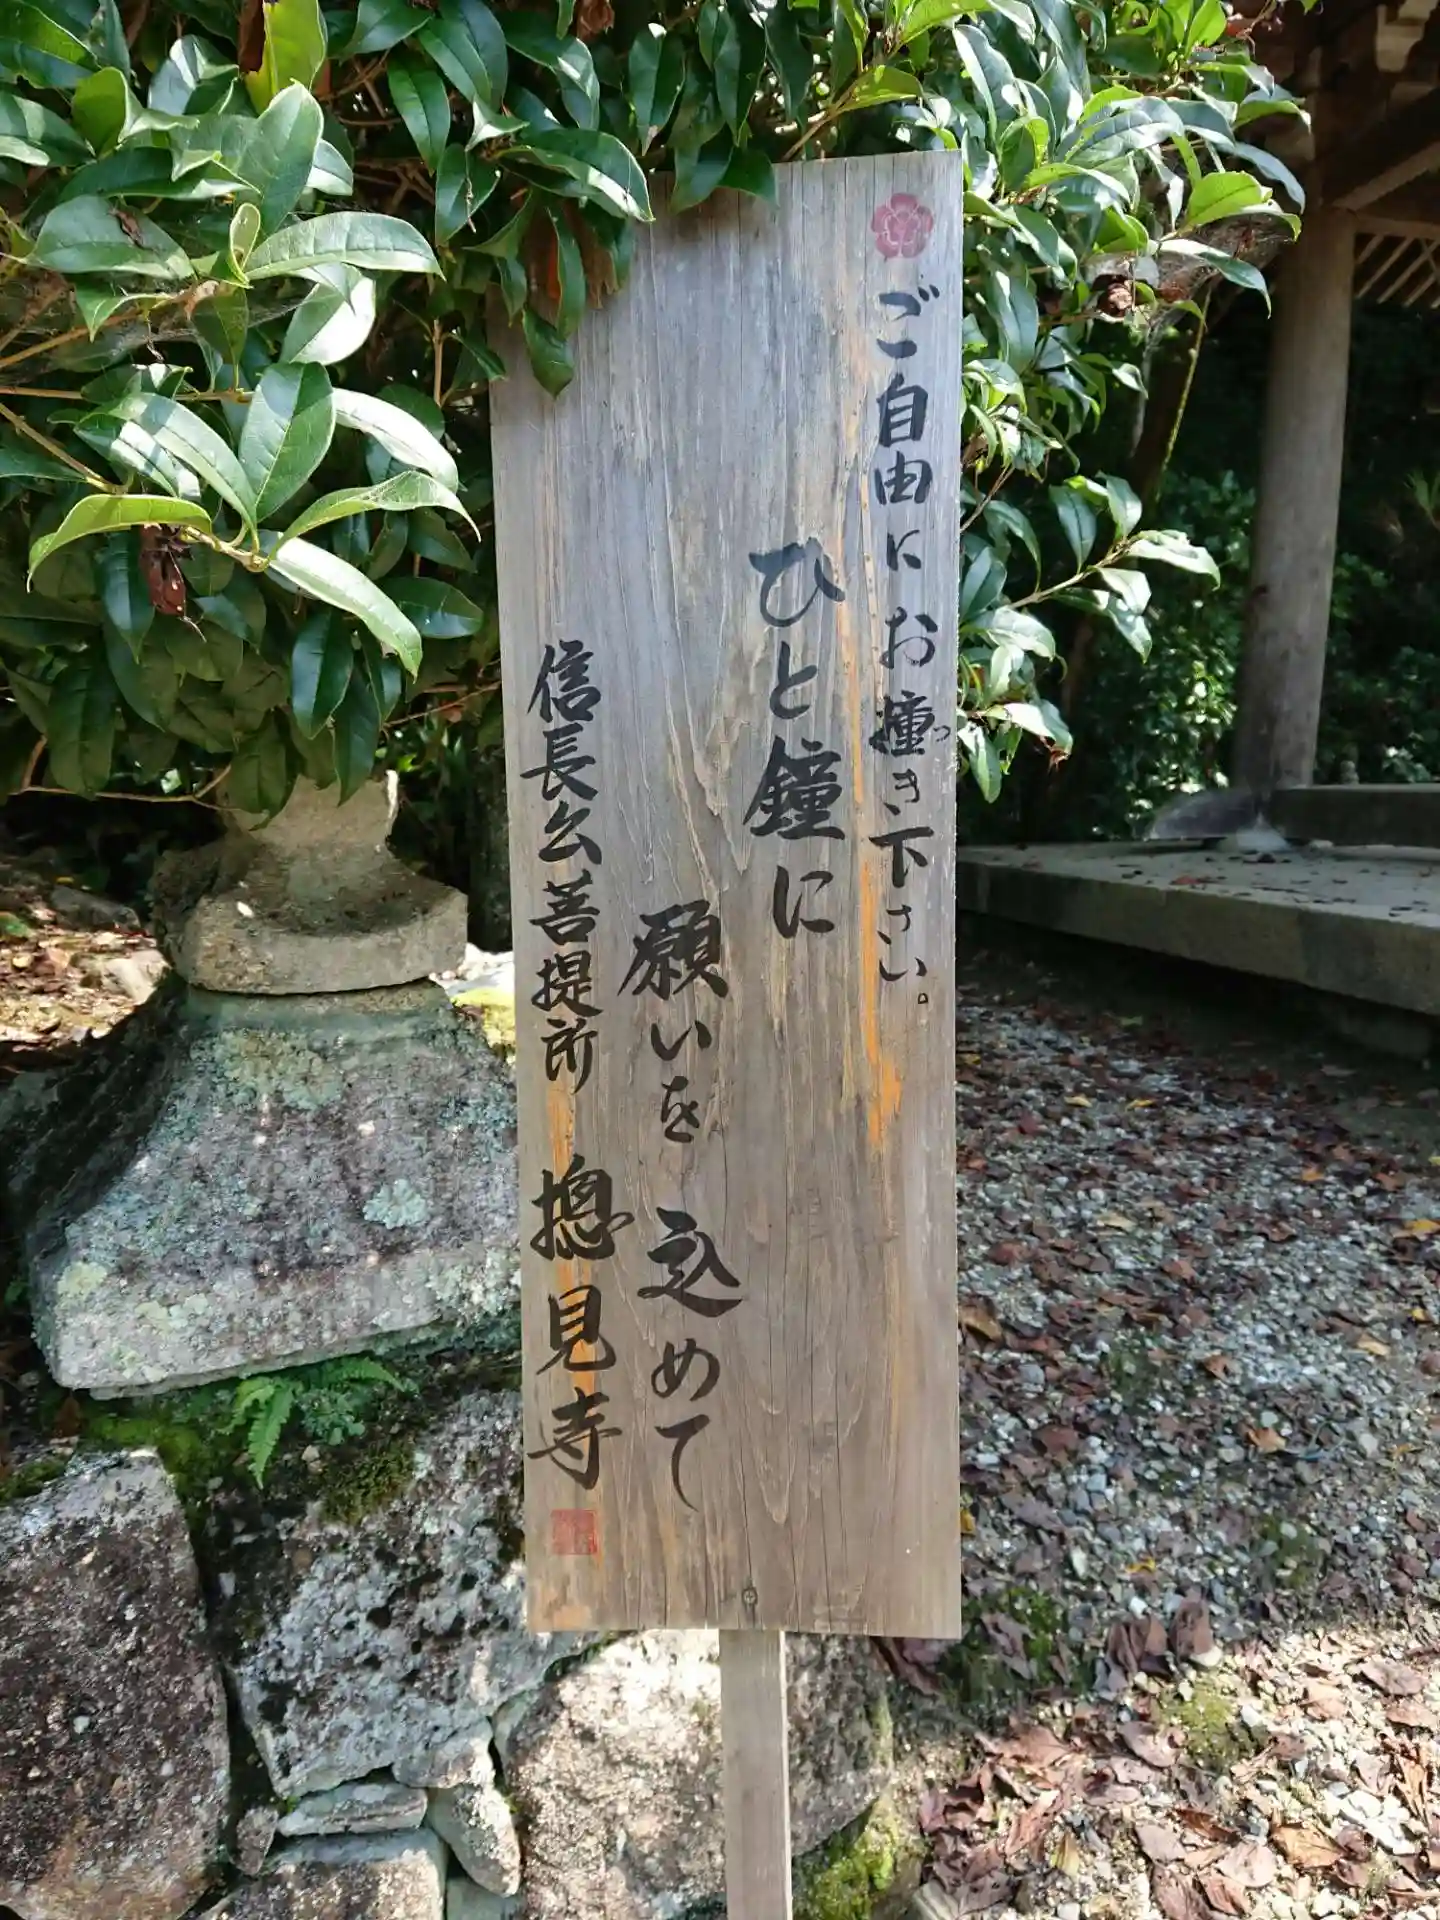 ご自由にお撞き下さい。
つ
ひと鐘に
願いを込めて
信長公菩提所 摠見寺